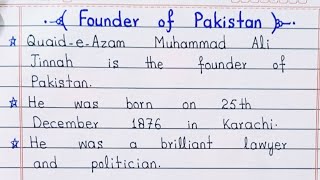 Founder of Pakistan
Quaid-e-Azam Muhammad Ali
Jinnah is the founder of
Pakistan.
He was born on 25th
December 1876 in Karachi.
He was a brilliant lawyer
and politician.